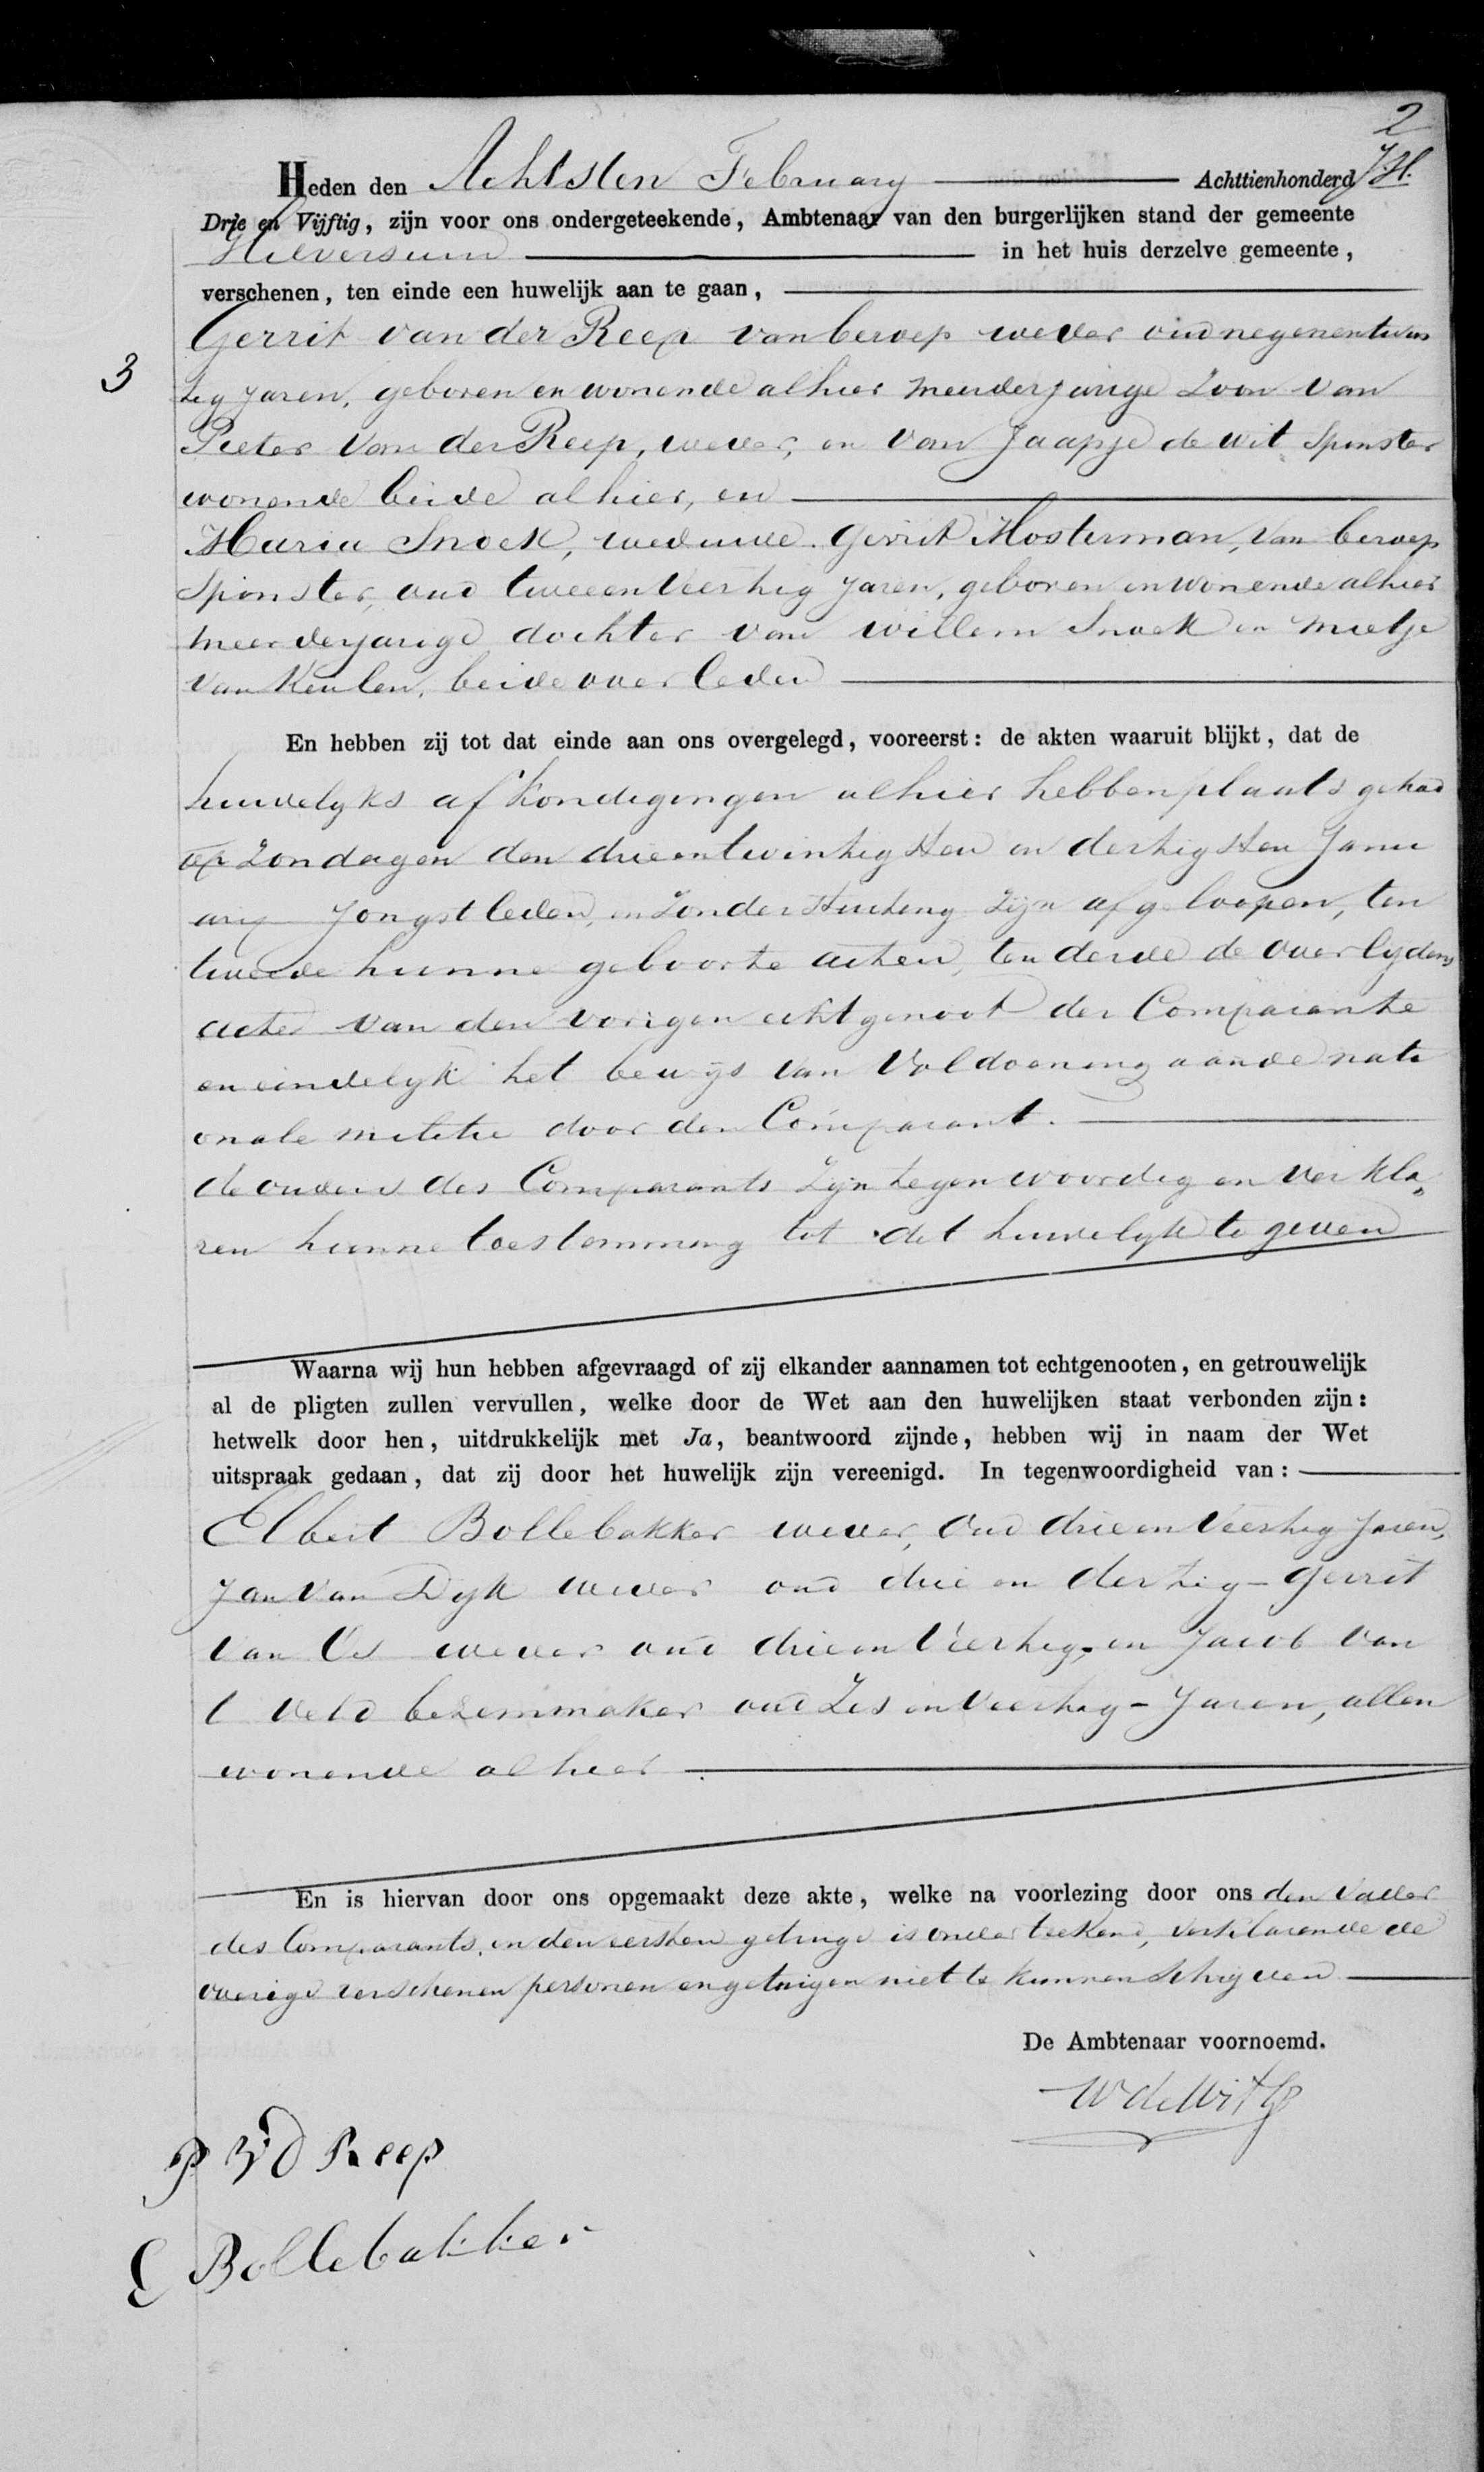 2
J.H.
Heden den Achtsten February Achttienhonderd
Drie en Vijftig, zijn voor ons ondergeteekende, Ambtenaar van den burgerlijken stand der gemeente
Hilversum in het huis derzelve gemeente,
verschenen, ten einde een huwelijk aan te gaan,
3
Gerrit van der Reep van beroep wever oud negenentwin
tig jaren, geboren en wonende alhier meerderjarige Zoon van
Pieter van der Reep, wever, en van Jaapje de wit Spinster
wonende beide alhier, en
Maria Snoek, weduwe Gerrit Mosterman, van beroep
Spinster, oud tweeenveertig jaren, geboren en wonende alhier
meerderjarige dochter van willem Snoek en Mietje
van Keulen, beide overleden
En hebben zij tot dat einde aan ons overgelegd, vooreerst: de akten waaruit blijkt, dat de
huwelyks afkondigingen alhier hebben plaats gehad
op Zondagen den drieentwintigsten en dertigsten Janu
ary jongstleden, en Zonder Stuiting Zijn afgeloopen, ten
tweede hunne geboorte acten, ten derde de overlydens
acte van den vorigen echtgenoot der Comparante
en eindelyk het bewijs van Voldoening aan de nati
onale militie door den Comparant.
de ouders des Comparants Zijn tegenwoordig en verkla„
ren hunne toestemming tot dit huwelyk te geven
Waarna wij hun hebben afgevraagd of zij elkander aannamen tot echtgenooten, en getrouwelijk
al de pligten zullen vervullen, welke door de Wet aan den huwelijken staat verbonden zijn:
hetwelk door hen, uitdrukkelijk met Ja, beantwoord zijnde, hebben wij in naam der Wet
uitspraak gedaan, dat zij door het huwelijk zijn vereenigd. In tegenwoordigheid van:
Elbert Bollebakker wever, oud drieenveertig jaren,
Jan van Dyk wever oud drie en dertig - Gerrit
van Es wever oud drieenveertig, en Jacob van
t Veld bezemmaker oud Zes en veertig - Jaren, allen
wonende alhier
En is hiervan door ons opgemaakt deze akte, welke na voorlezing door ons den Vader
des Comparants, en den eersten getuige is onderteekend, verklarende de
overige verschenen personen en getuigen niet te kunnen schryven
De Ambtenaar voornoemd.
W de Wit
P vd Reep
E Bollebakker